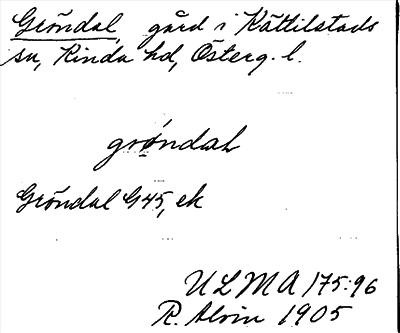 Gröndal, gård i Kättilstads
sn, Kinda hd, Österg. l.
grǿndal
Gröndal G45, ek
ULMA 175:96
R. Alvin 1905